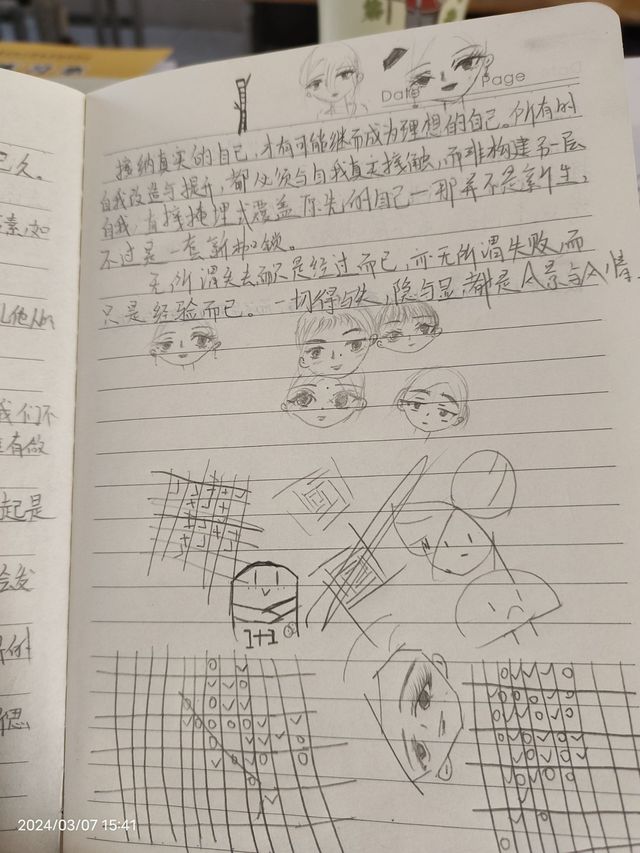 Date
Page
接纳真实的自己,才有可能继而成为理想的自己。所有的
自我改造与提升,都必须与自我真实接触,而非构建另一层
自我,直接掩埋式覆盖原先的自己一那并不是新生,
不过是一套新枷锁。
无所谓失去而只是经过而已,亦无所谓失败,而
只是经验而已。一切得与失,隐与显,都是
己久。
素,如
他们
我们不
有做
起是
会发
的
1+1
2024/03/07 15:41